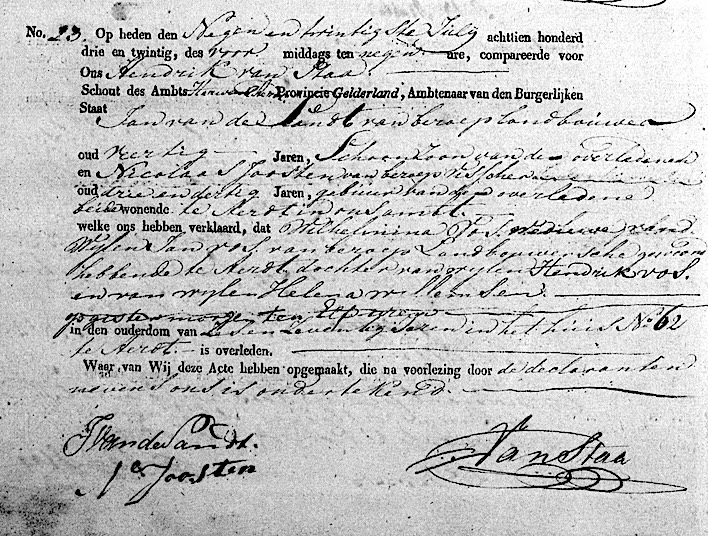 No. 23. Op heden den Negen en twintigste July achttien honderd
drie en twintig, des voor middags ten negen ure, compareerde voor
Ons Hendrik van Staa
Schout des Ambts Provincie Gelderland, Ambtenaar van den Burgerlijken
Staat Jan van de Sandt van beroep landbouwer
oud veertig Jaren, Schoonzoon van de overledene
en Nicolaas Joosten van beroep
oud drie en dertig Jaren, gebuur van de overledene
beide wonende te Aerdt in ons ambt
welke ons hebben verklaard, dat Wilhelmina Vos weduwe van
Wylen Jan Vos van beroep Landbouwersche gewoond
hebbende te Aerdt dochter van wylen Hendrik Vos
en van wylen Helena Willemsen
gisteren morgen ten Elf ure
in den ouderdom van Zes en Zeventig Jaren in het huis No 62
te Aerdt is overleden.
Waar van Wij deze Acte hebben opgemaakt, die na voorlezing door de declaranten
nevens ons is ondertekend.
JVandeSandt.
Ns Joosten
VanStaa